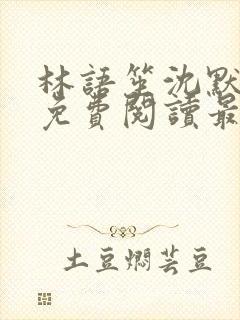 林語笙沈默
免費閱讀最
土豆燜芸豆